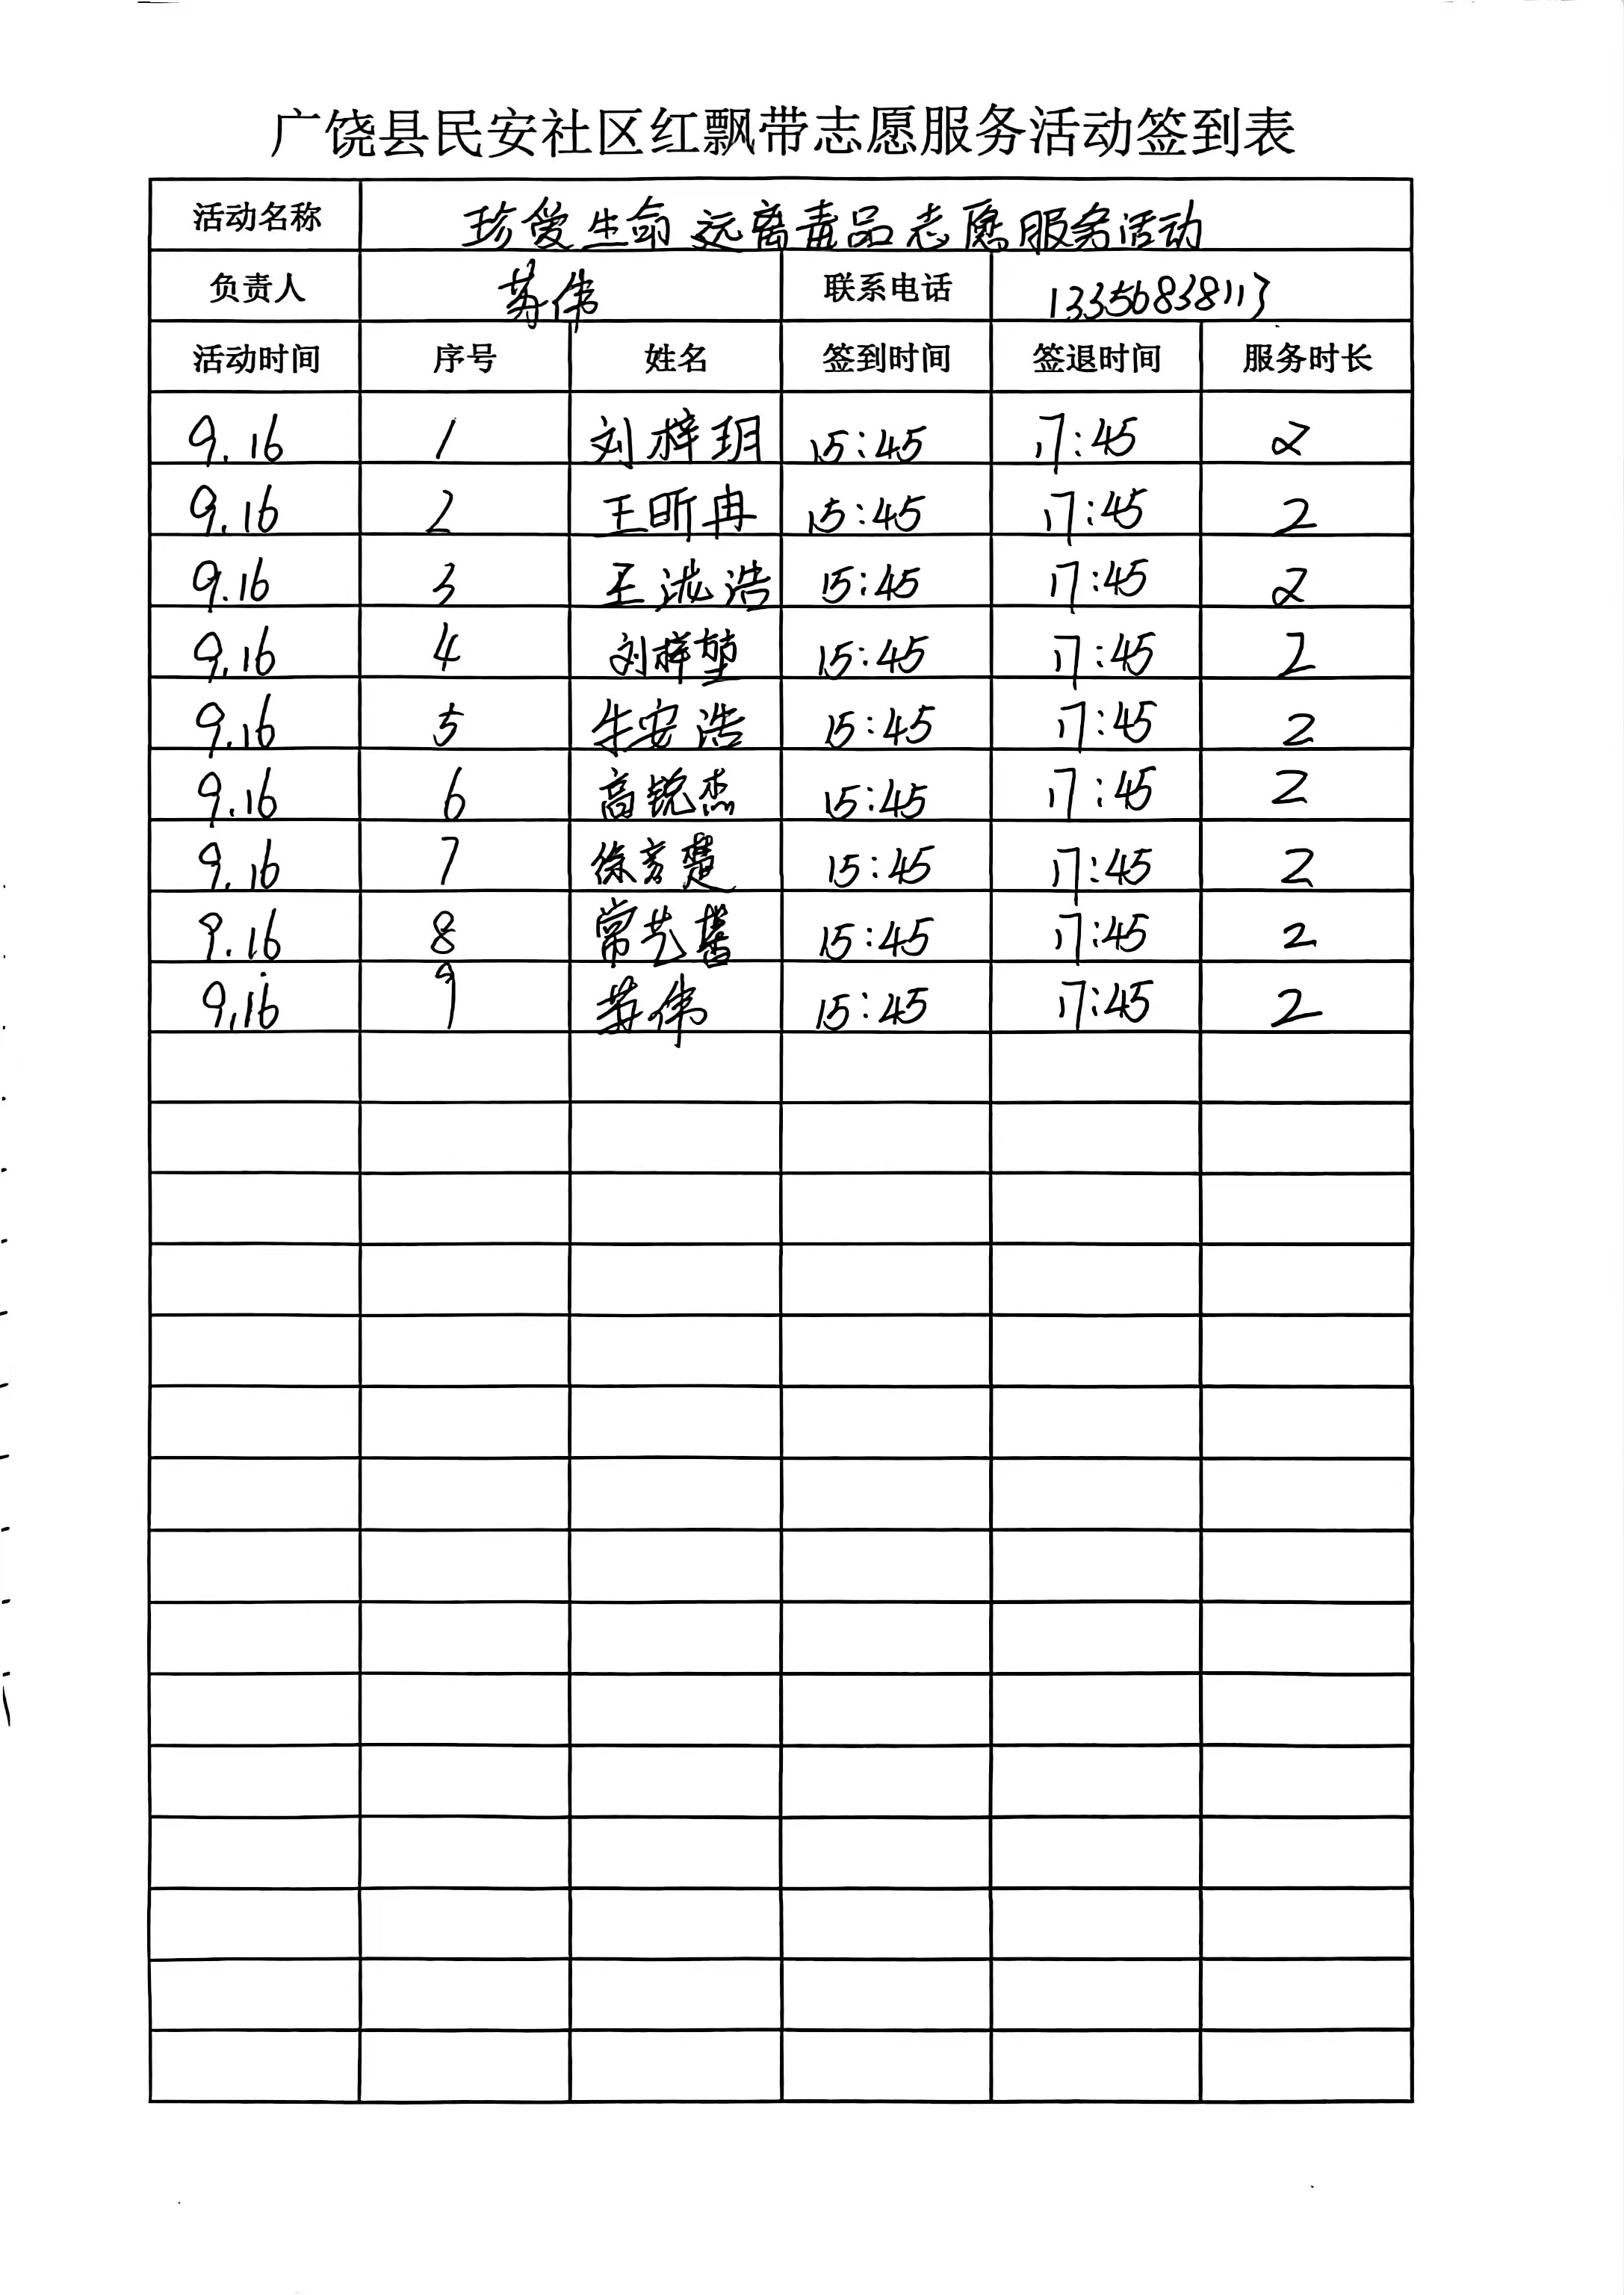 广饶县民安社区红飘带志愿服务活动签到表
活动名称 珍爱生命 远离毒品 志愿服务活动
负责人 苏伟 联系电话 13356838113
活动时间 序号 姓名 签到时间 签退时间 服务时长
9.16 1 刘梓玥 15:45 17:45 2
9.16 2 王昕冉 15:45 17:45 2
9.16 3 王泷浩 15:45 17:45 2
9.16 4 刘梓堃 15:45 17:45 2
9.16 5 牛安浩 15:45 17:45 2
9.16 6 高锐杰 15:45 17:45 2
9.16 7 徐 楚 15:45 17:45 2
9.16 8 常艺 15:45 17:45 2
9.16 9 苏伟 15:45 17:45 2